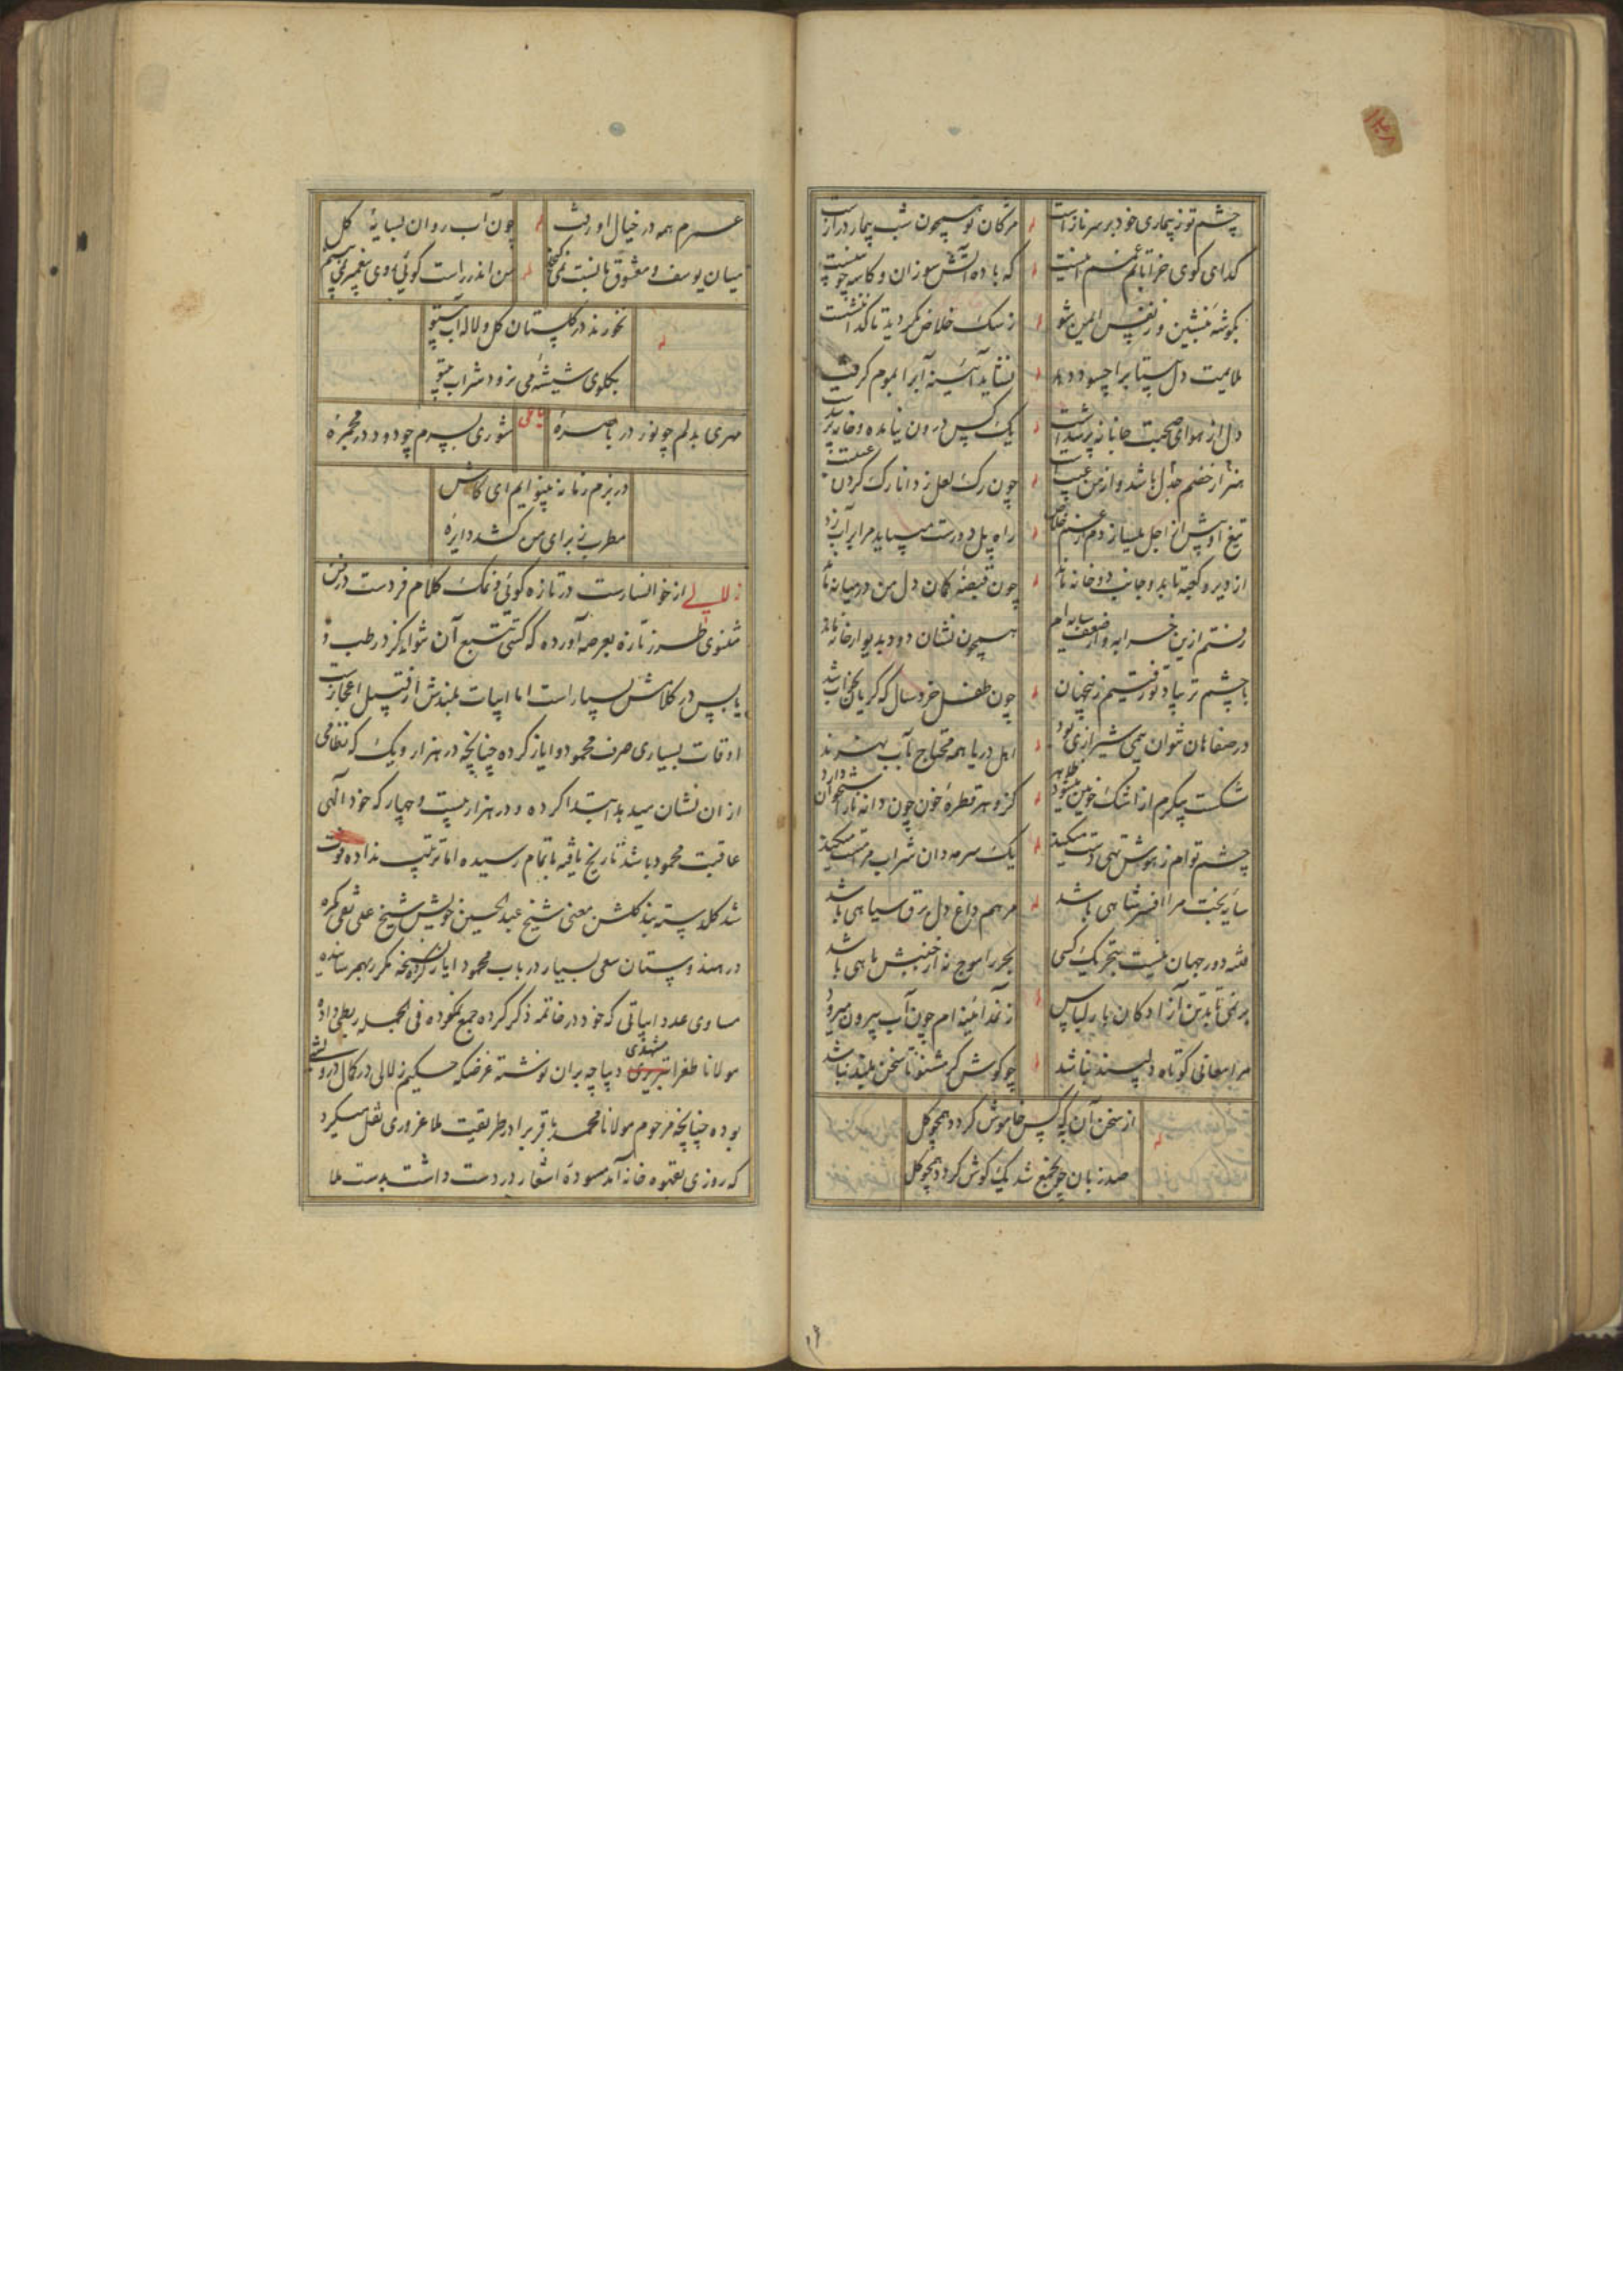 چشم تو ز بیماری خود بر سر ناز است مژکان تو همچون شب بیمار دراز است
کدای کوی خراباتم غمم این نیست که باده آتش سوزان و کاسه چوبینست
بکوشهٔ بنشین و ز نفس ایمن شو ز سک خلاص نکردید تا کدا ننشست
ملایمت دل بیتاب را چه سود دهد نشاید آینهٔ آب را بموم کرفت
دل از هوای صحبت جانانه پر شد است یک کس درون نیامده و خانه پر شد است
هنر از خصم جدل باشد و از من عیبست چون رک لعل ز دانا رک کردن
تیغ او پیش از اجل میسازد از غم خلاص راه پل دورست میباید مرا بر آب زد
از دیر و کعبه تا بد و جانب دو خانه ماند چون قبضهٔ کمان دل من در میانه ماند
رفتم ازین خرابه و از ضعف سایه ام همچون نشان دود بدیوار خانه ماند
با چشم تر بیاد تو رفتیم زین جهان چون طفل خردسال که کریان بخواب شد
در صفاهان نتوان همچی شیرازی بود اهل دریا همه محتاج بآب هنرند
شکست پیکرم از اشک خونین میشود ظاهر کزو هر قطرهٔ خون چون دانه نار استخوان دارد
چشم توام ز هوش تهی دست میکند یک سرمه دان شراب مرا مست میکند
سایهٔ بخت مرا افسر شاهی باشد مرهم داغ دل برق سیاهی باشد
فتنه دور جهان نیست بتحریک کسی بحر را موج نه از جنبش ماهی باشد
بر نمی تابد تن آزادکان بار لباس از نمد آئینه ام چون آب بیرون میرود
مرا معانی کوتاه دلپسند نباشد چو کوش کر مشنو تا سخن بلند نباشد
از سخن آن به که کس خاموش کردد همچو کل
صد زبان چون جمع شد یک کوش کردد همچو کل
۱۶
عمرم همه در خیال او رفت چون آب روان بسایهٔ کل
میان یوسف و معشوق ما نسبت نمی کنجد من اندر راست کوئی روی پیغمبر نمی بینم
نخورند در کلستان کل و لاله آب بیتو
بکلوی شیشهٔ می نرود شراب بیتو
رباعی
مهری بدلم چو نور در باصرهٔ شوری بسرم چو دود در مجمرهٔ
در بزم زمانه بینوایم ای کاش
مطرب نی برای من کشد دایرهٔ
زلالی از خوانسارست در تازه کوئی و نمک کلام فردست در فن
مثنوی طرز تازه بعرصه آورده که کسی تتبع آن نتواند کرد رطب و
یابس در کلامش بسیار است اما ابیات بلندش از قبیل اعجازست
اوقات بسیاری صرف محمود و ایاز کرده چنانچه در هزار و یک که نظامی
از ان نشان میدهد ابتدا کرده و در هزار بیست و چهار که خود الهی
عاقبت محمود باشد تاریخ یافته باتمام رسیده اما ترتیب نداده فوت
شد کلدسته بند کلشن معنی شیخ عبدالحسین خویش شیخ علی نقی کمره
در هندوستان سعی بسیار در باب محمود ایاز کرده نسخه مکرر بهمرسانیده
مساوی عدد ابیاتی که خود در خاتمه ذکر کرده جمع نموده فی الجمله ربطی داده
مولانا طغرا تبریزی مشهدی دیباچه بران نوشته غرضکه حکیم زلالی در کمال درویشی
بوده چنانچه مرحوم مولانا محمد باقر برادر طریقیت ملا غروری نقل میکرد
که روزی بقهوه خانه آمد مسودهٔ اشعار در دست داشت بدست ملا